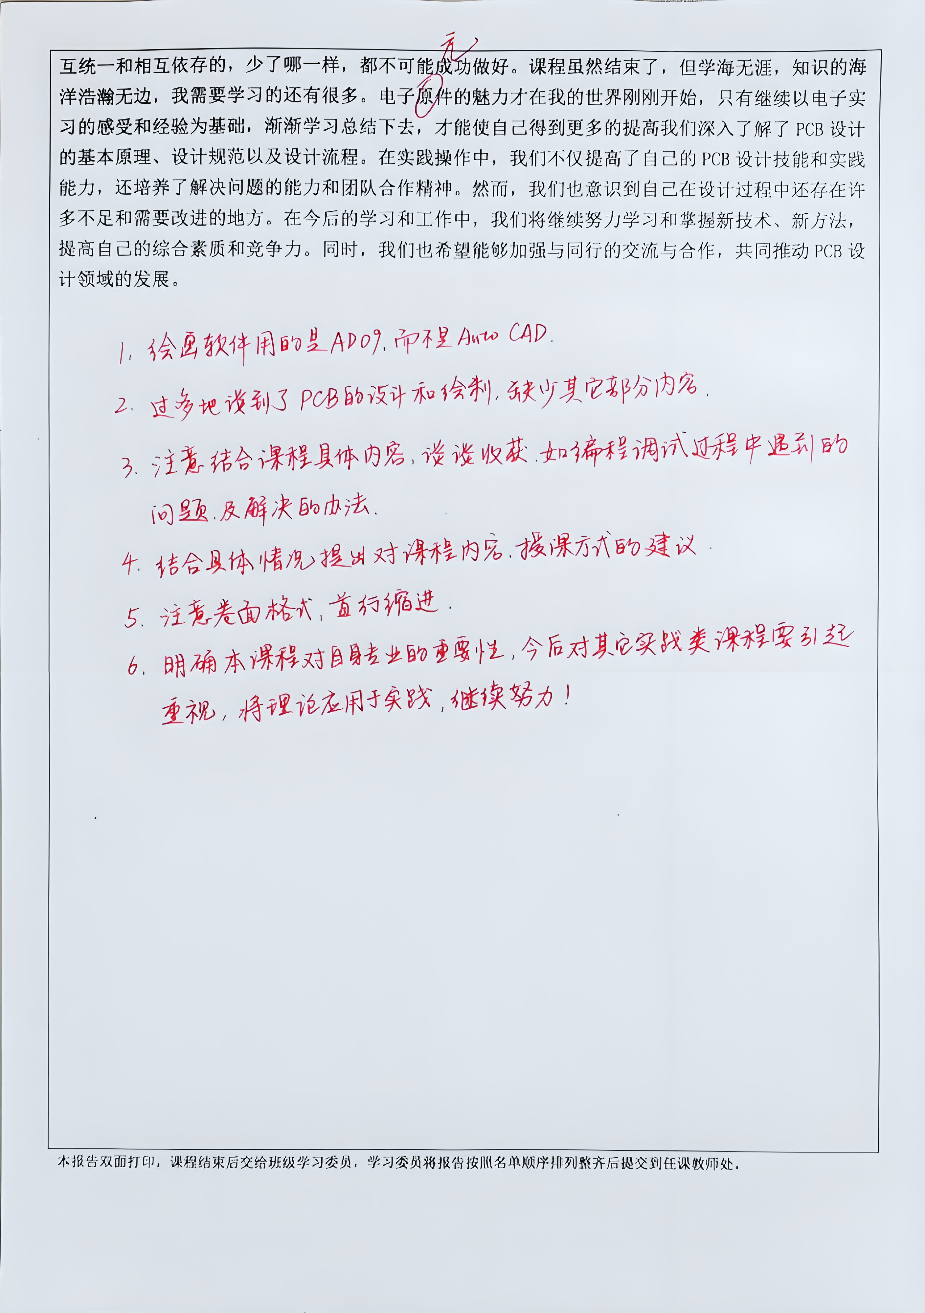 元
互统一和相互依存的，少了哪一样，都不可能成功做好。课程虽然结束了，但学海无涯，知识的海
洋浩瀚无边，我需要学习的还有很多。电子原件的魅力才在我的世界刚刚开始，只有继续以电子实
习的感受和经验为基础，渐渐学习总结下去，才能使自己得到更多的提高我们深入了解了 PCB 设计
的基本原理、设计规范以及设计流程。在实践操作中，我们不仅提高了自己的 PCB 设计技能和实践
能力，还培养了解决问题的能力和团队合作精神。然而，我们也意识到自己在设计过程中还存在许
多不足和需要改进的地方。在今后的学习和工作中，我们将继续努力学习和掌握新技术、新方法，
提高自己的综合素质和竞争力。同时，我们也希望能够加强与同行的交流与合作，共同推动 PCB 设
计领域的发展。
1. 绘画软件用的是AD09,而不是Auto CAD.
2. 过多地谈到了PCB的设计和绘制,缺少其它部分内容.
3. 注意结合课程具体内容,谈谈收获,如编程调试过程中遇到的
问题,及解决的办法.
4. 结合具体情况提出对课程内容,授课方式的建议.
5. 注意卷面格式,首行缩进.
6. 明确本课程对自身专业的重要性,今后对其它实践类课程要引起
重视,将理论应用于实践,继续努力!
本报告双面打印，课程结束后交给班级学习委员，学习委员将报告按照名单顺序排列整齐后提交到任课教师处。